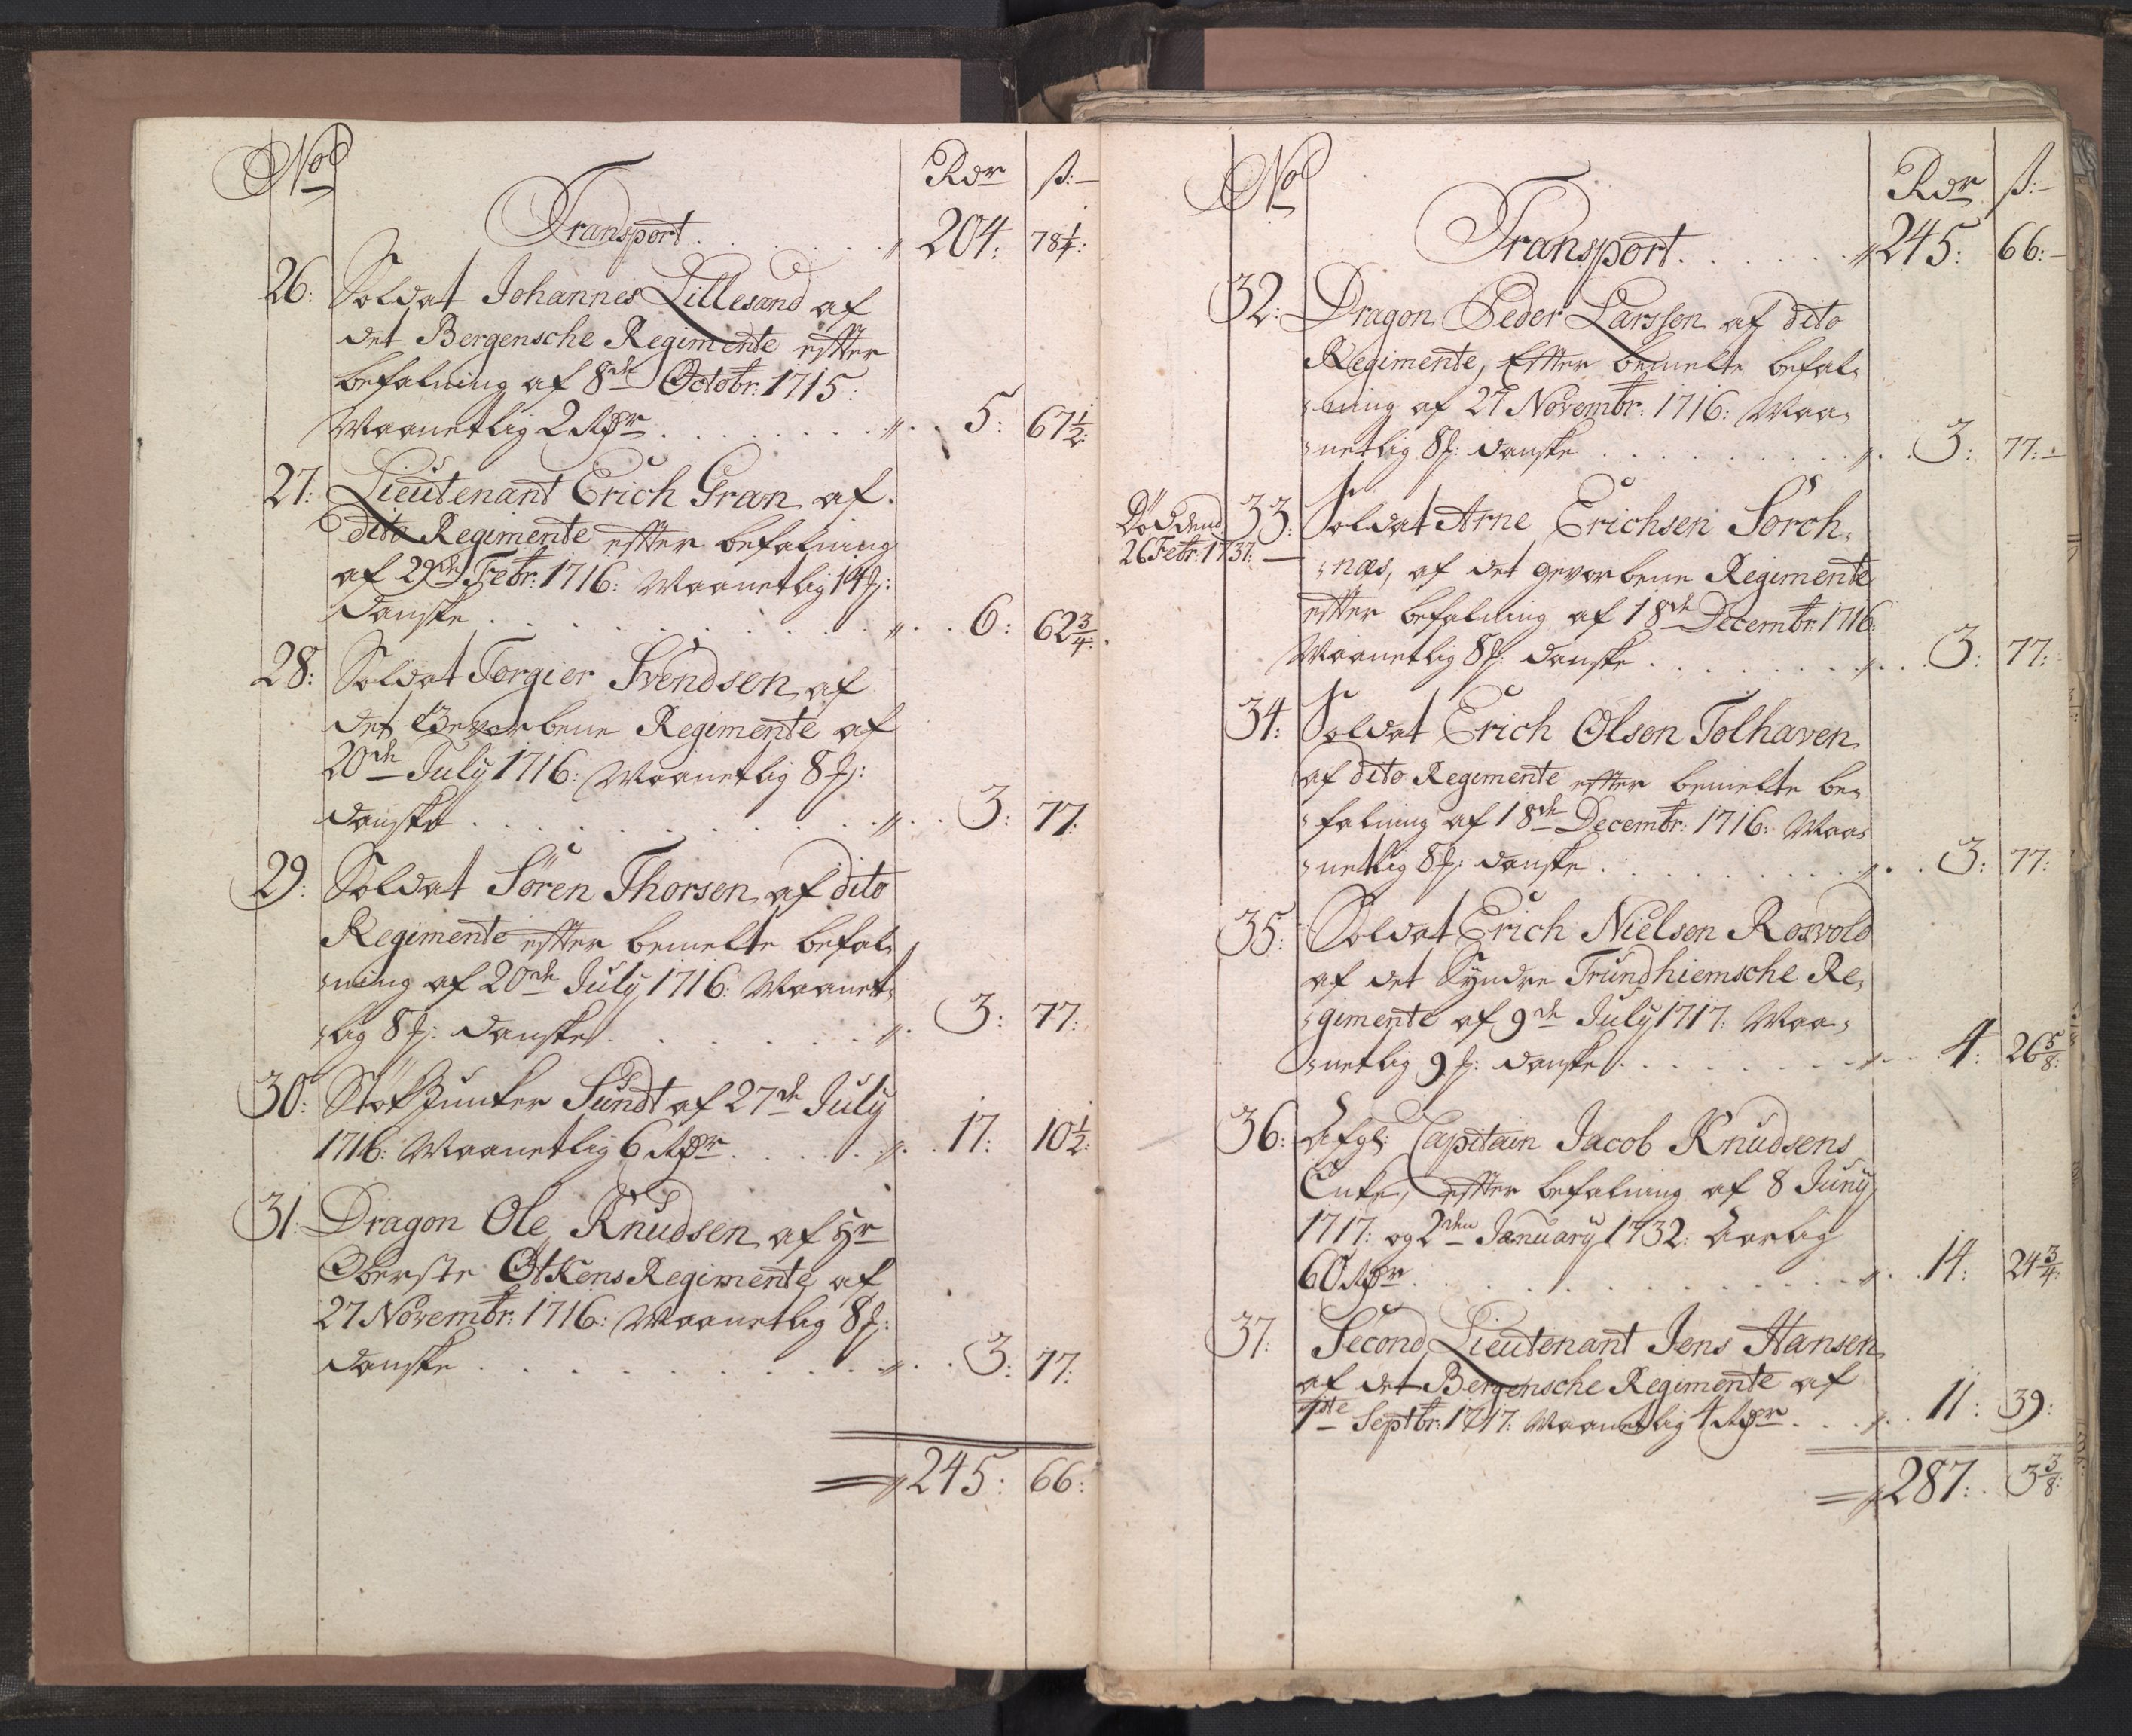 No
Rdr ß:
Transport . . . . . . 204: 78 1/4:
26: Soldat Johannes Lillesand af
det Bergensche Regimente effter
befalning af 8de Octobr: 1715:
Maanetlig 2 Rdr . . . . . . 5: 67 1/2:
27: Lieutenant Erich Gran af
dito Regimente effter befalning
af 29de Febr: 1716: Maanetlig 14 ß:
danske . . . . . . 6: 62 3/4:
28: Soldat Torgier Svendsen af
det Gevorbene Regimente af
20de July 1716: Maanetlig 8 ß:
danske . . . . . . 3: 77:
29: Soldat Sören Thorsen af dito
Regimente effter bemelte befal-
-ning af 20de July 1716: Maanet-
-lig 8 ß: danske . . . . . . 3: 77:
30: Støkjunker Sundt af 27de July
1716: Maanetlig 6 Rdr . . . . . . 17: 10 1/2:
31: Dragon Ole Knudsen af Hr
Oberste Ötkens Regimente af
27 Novembr: 1716: Maanetlig 8 ß:
danske . . . . . . 3: 77:
245: 66:
No
Rdr ß:
Transport . . . . . . 245: 66:
32: Dragon Peder Larssen af dito
Regimente, Effter bemelte befal-
-ning af 27 Novembr: 1716: Maa-
-netlig 8 ß: danske . . . . . . 3: 77:
Död dend
26 Febr: 1737:
33: Soldat Arne Erichsen Sörch-
-næs, af det gevorbene Regimente
effter befalning af 18de Decembr 1716:
Maanetlig 8 ß: danske . . . . . . 3: 77:
34: Soldat Erich Olsen Tolhaven
af dito Regimente effter bemelte be-
-falning af 18de Decembr: 1716: Maa-
-netlig 8 ß: danske . . . . . . 3: 77:
35: Soldat Erich Nielsen Rosvold
af det Syndre Trundhiemsche Re-
-gimente af 9de July 1717: Maa-
-netlig 9 ß: danske . . . . . . 4: 26 5/8:
36: Afgl: Capitain Jacob Knudsens
Enke, effter befalning af 8 Juny
1717: og 2den January 1732: Aarlig
60 Rdr . . . . . . 14: 24 3/4:
37: Second Lieutenant Jens Hansen
af det Bergensche Regimente af
1ste Septbr: 1717: Maanetlig 4 Rdr . . . . 11: 39:
287: 3 3/8: